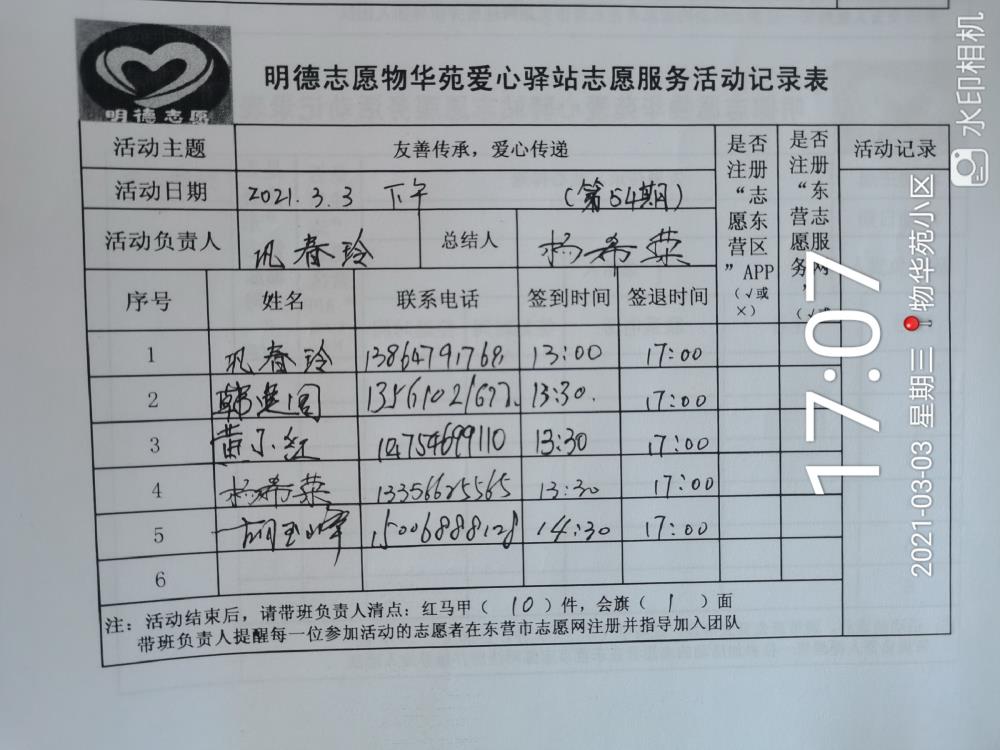 明德志愿
明德志愿物华苑爱心驿站志愿服务活动记录表
活动主题 友善传承，爱心传递 是否注册“志愿东营区”APP（√或×） 是否注册“东营志愿服务网” 活动记录
活动日期 2021.3.3 下午 （第54期）
活动负责人 巩春玲 总结人 杨希荣
序号 姓名 联系电话 签到时间 签退时间
1 巩春玲 13:00 17:00
2 13:30. 17:00
3 黄小红 14754699110 13:30 17:00
4 杨希荣 13356625565 13:30 17:00
5 胡玉峰 15006888128 14:30 17:00
6
注：活动结束后，请带班负责人清点：红马甲（10）件，会旗（1）面
带班负责人提醒每一位参加活动的志愿者在东营市志愿网注册并指导加入团队
水印相机
17:07
2021-03-03 星期三 物华苑小区